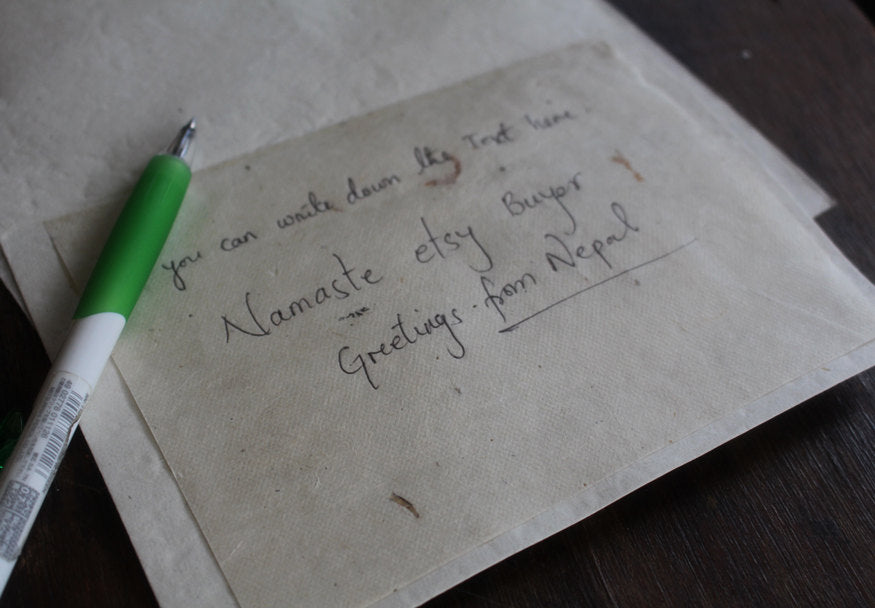 you can write down the Text here.
Namaste etsy Buyer
Greetings from Nepal